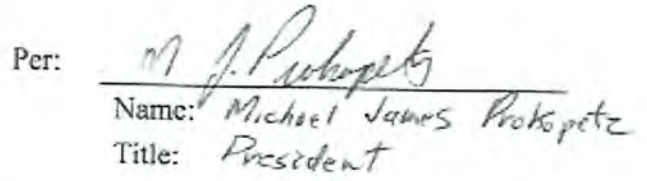 Per: M J. Prokopetz
Name: Michael James Prokopetz
Title: President